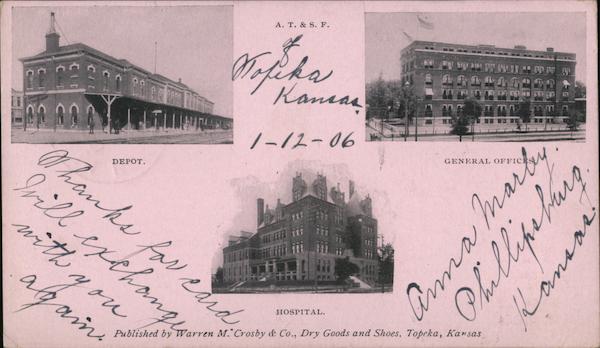 A. T. & S. F.
of
Topeka
Kansas.
1-12-06
DEPOT.
GENERAL OFFICES.
Thanks for card
Will exchange
with you
again.
Anna Marby.
Phillipsburg.
Kansas.
HOSPITAL.
Published by Warren M. Crosby & Co., Dry Goods and Shoes, Topeka, Kansas